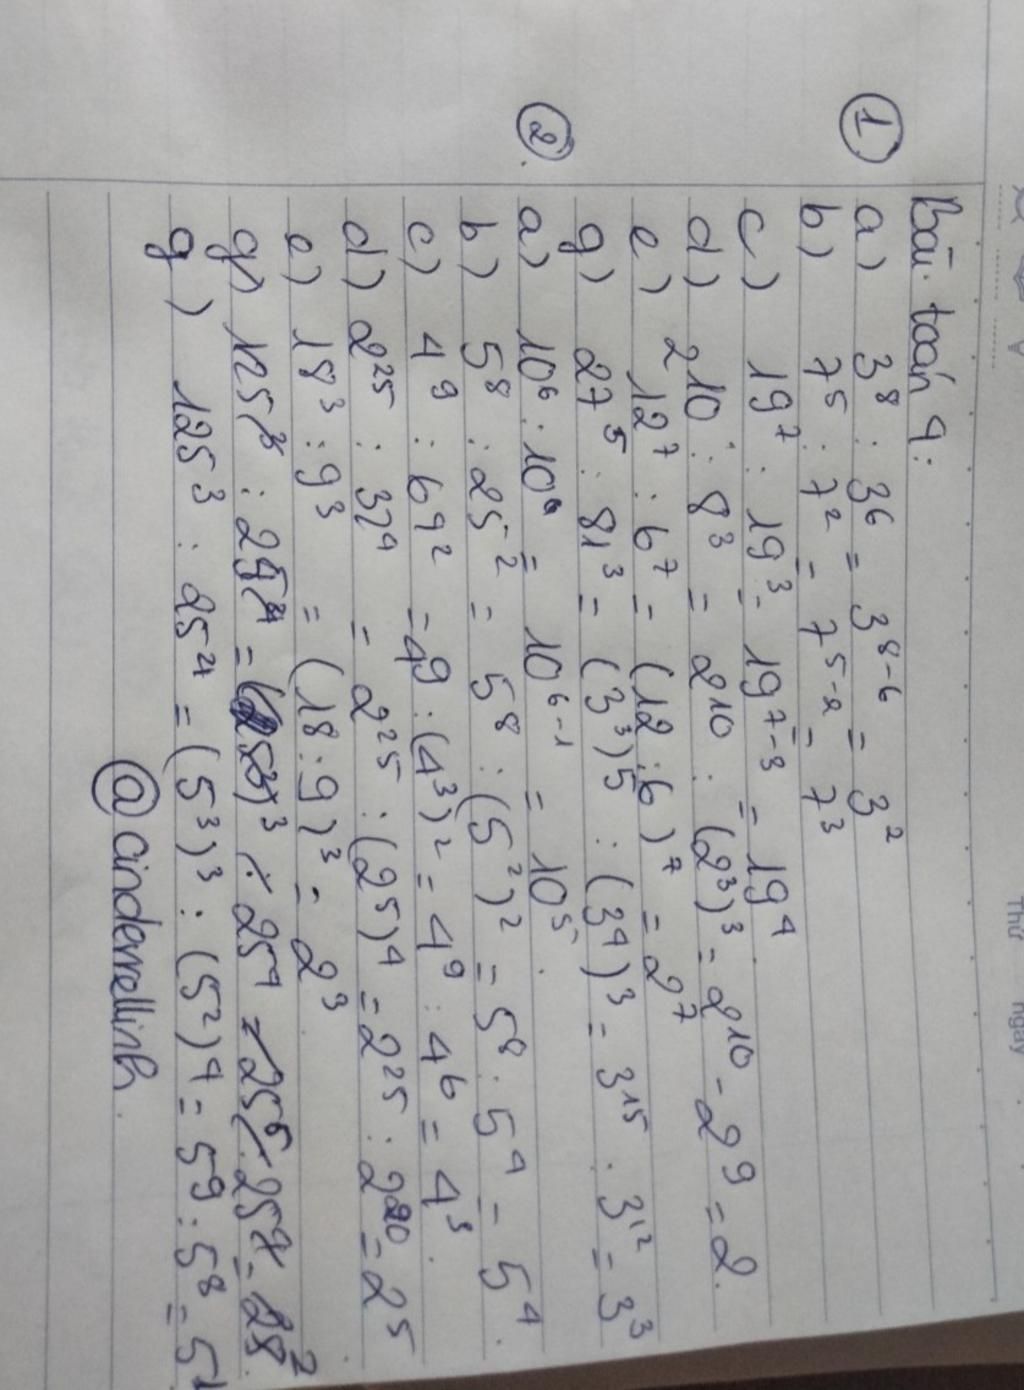 Thứ ngày
Bài toán 4:
① a) 3⁸ : 3⁶ = 3⁸⁻⁶ = 3²
b) 7⁵ : 7² = 7⁵⁻² = 7³
c) 19⁷ : 19³ = 19⁷⁻³ = 19⁴
d) 2¹⁰ : 8³ = 2¹⁰ : (2³)³ = 2¹⁰ - 2⁹ = 2.
e) 12⁷ : 6⁷ = (12 : 6)⁷ = 2⁷
g) 27⁵ : 81³ = (3³)5 : (3⁴)³ = 3¹⁵ : 3¹² = 3³
② a) 10⁶ : 10 = 10⁶⁻¹ = 10⁵.
b) 5⁸ : 25² = 5⁸ : (5²)² = 5⁸ : 5⁴ = 5⁴.
c) 4⁹ : 64² = 49 : (4³)² = 4⁹ : 4⁶ = 4³.
d) 2²⁵ : 32⁴ = 2²⁵ : (2⁵)⁴ = 2²⁵ : 2²⁰ = 2⁵
e) 18³ : 9³ = (18 : 9)³ = 2³
g) 125³ : 25⁴ = (5³)³ : (5²)⁴ = 5⁹ : 5⁸ = 5¹
@cinderrellinh.